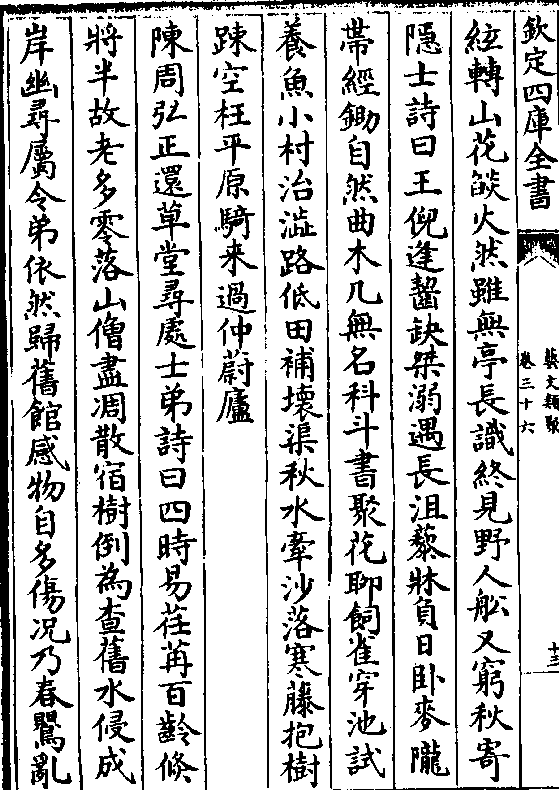 欽定四庫全書
藝文類聚
卷三十六
十三
絃轉山花燄火然雖無亭長識終見野人舩又窮秋寄
隱士詩曰王倪逢齧缺桀溺遇長沮藜牀負日卧麥隴
帶經鋤自然曲木几無名科斗書聚花聊飼雀穿池試
養魚小村治澁路低田補壞渠秋水牽沙落寒藤抱樹
踈空枉平原騎来過仲蔚廬
陳周弘正還草堂尋處士弟詩曰四時易荏苒百齡倐
將半故老多零落山僧盡凋散宿樹倒為查舊水侵成
岸幽尋屬令弟依然歸舊館感物自多傷况乃春鸎亂